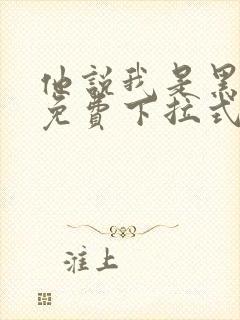 他說我是黑
免費下拉式
淮上